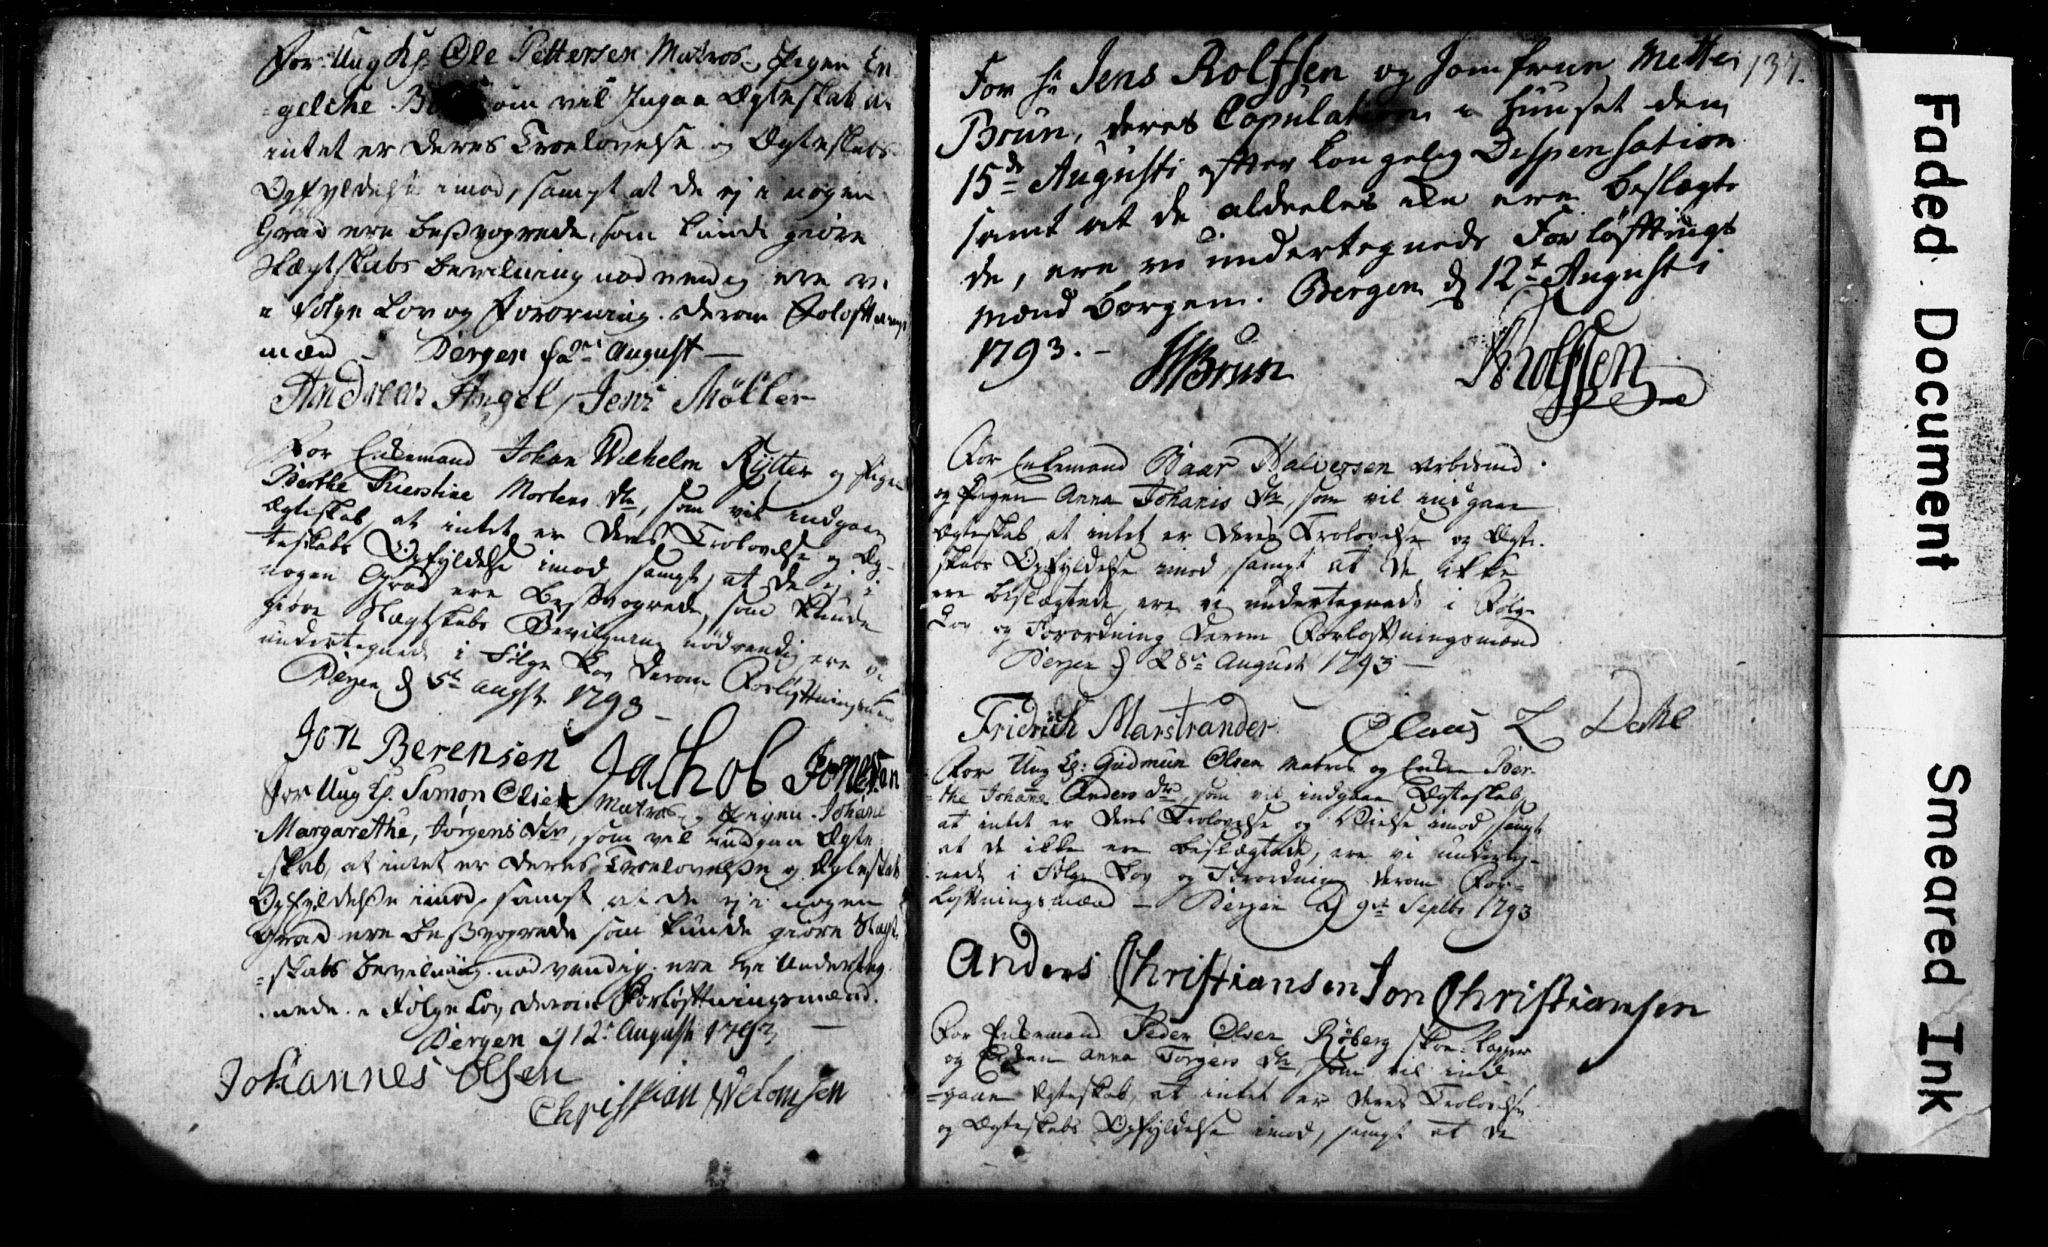 For Ung K. Ole Pettersen Matros, Pigen En
=gelche B som vil Indgaa Ægteskab at
intet er deres Troelovelse og Ægteskabs
Opfyldelse imod, sampt at de ej i nogen
Grad ere Beßvogrede, som kunde giöre
Slægtskabs bevilning nödvendig ere vi
i Følge Lov og Forordning derom Forløftnings
mænd Bergen d 2 August
Andreas Angel Jens Møller
For Enkemand Johan Wilhelm Rytter og Pigen
Berthe Kierstine Mortens Dtr, som vil indgaae
Ægteskab, at intet er deres Trolovelse og Æg-
teskabs Opfyldelse imod sampt, at de ej i
nogen Grad ere Beßvogrede, som kunde
giöre Slægtskabs Bevilgning nödvendig ere vi
undertegnede i Følge Lov derom Forløftningsmænd
Bergen d 5te Augst. 1793
Jon Berensen Jachob Jonesen
For Ung K. Simon Olsen Matros, Pigen Johane
Margarethe, Jørgens Dtr, som vil indgaa Ægte
skab, at intet er deres Troelovelse og Ægteskab
Opfyldelse imod, sampt at de ej i nogen
Grad ere Beßvogrede som kunde giöre Slægt
=skabs bevilning nödvendig. ere vi Underteg
nede i Følge Lov derom Forløftningsmænd.
Bergen d 12 August 1793
Johannes Olsen
Christian
137.
For Hr Jens Rolfsen og Jomfrue Mette
Brun, deres Copulation i Huuset den
15de Augusti efter kongelig Dispensation
samt at de aldeeles ikke ere beslægte
de, ere vi undertegnede Forløftnings
mænd borgen. Bergen d 12t Augusti
1793. Brun Rolfsen
For Enkemand Baar Halversen Arbdsmd
og Pigen Anna Johanis Dtr, som vil indgaae
Ægteskab, at intet er deres Trolovelse og Ægte
skabs Opfyldelse imod, sampt at de ikke
ere beslægtede, ere vi undertegnede i Følge
Lov og Forordning derom Forløftningsmænd
Bergen d 28 August 1793
Fridrich Marstrander Claus L Dahl
For Ung K: Gudmun Olsen Matros og Enken Ber-
the Johane Anders Dtr, som vil indgaae Ægteskab
at intet er deres Trolovelse og Vielse imod sampt
at de ikke ere beslægtede, ere vi underteg-
nede i Følge Lov og Forordning derom For-
løftningsmænd Bergen d 9de Septbr 1793
Anders Christiansen Jon Christiansen
For Enkemand Peder Olsen Röberg Skoe-lapper
og Enken Anna Torgiers Dtr, som vil ind
=gaae Ægteskab, at intet er deres Trolovelse
og Ægteskabs Opfyldelse imod, sampt at de
Faded Document
Smeared Ink